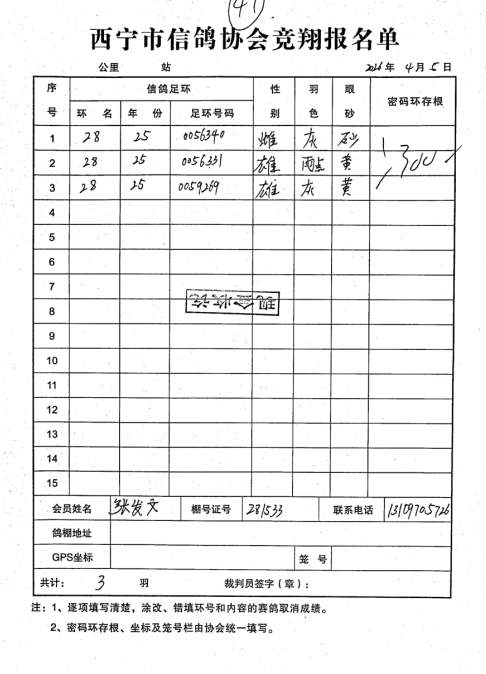 (41)
西宁市信鸽协会竞翔报名单
公里 站 2026年 4月5日
序号 信鸽足环 性别 羽色 眼砂 密码环存根
环名 年份 足环号码
1 28 25 0056340 雌 灰 砂
2 28 25 0056331 雄 雨点 黄 300
3 28 25 0059269 雄 灰 黄
4
5
6
7
现金收讫
8
9
10
11
12
13
14
15
会员姓名 张发文 棚号证号 281533 联系电话 13109705726
鸽棚地址
GPS坐标 笼号
共计: 3 羽 裁判员签字(章):
注:1、逐项填写清楚,涂改、错填环号和内容的赛鸽取消成绩。
2、密码环存根、坐标及笼号栏由协会统一填写。